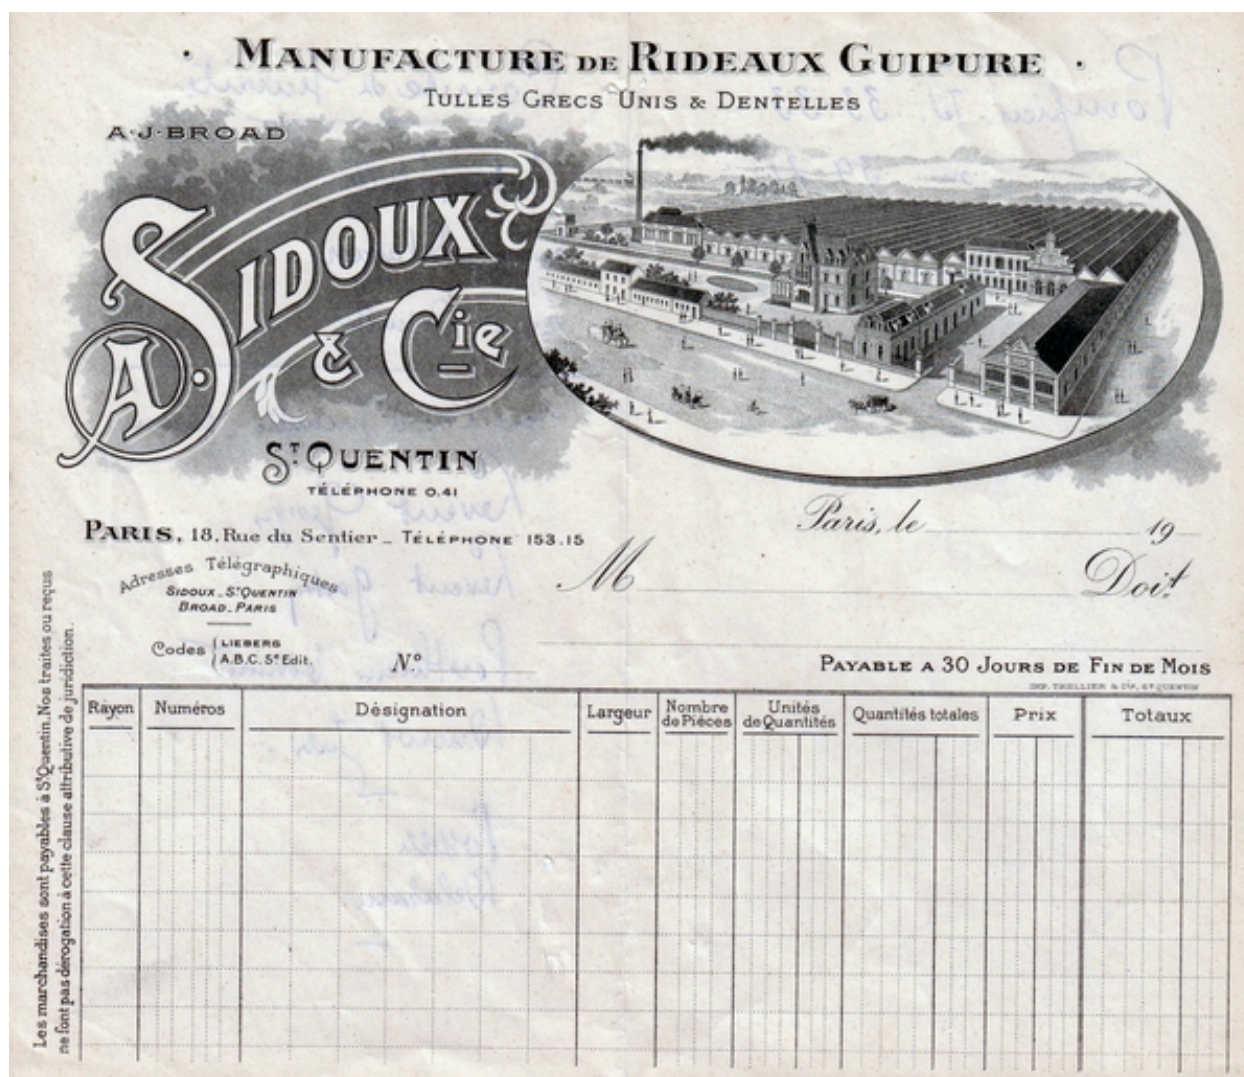 · MANUFACTURE DE RIDEAUX GUIPURE ·
TULLES GRECS UNIS & DENTELLES
A·J·BROAD
A. SIDOUX
& Cie
ST QUENTIN
TÉLÉPHONE 0.41
PARIS, 18, Rue du Sentier _ TÉLÉPHONE 153.15
Paris, le 19
Adresses Télégraphiques
SIDOUX _ ST QUENTIN
BROAD _ PARIS
M Doit
Codes { LIEBERG
A.B.C. 5e Edit.
No
PAYABLE A 30 JOURS DE FIN DE MOIS
IMP. THELLIER & Cie, ST QUENTIN
Rayon Numéros Désignation Largeur Nombre de Pièces Unités de Quantités Quantités totales Prix Totaux
Les marchandises sont payables à St Quentin. Nos traites ou reçus
ne font pas dérogation à cette clause attributive de juridiction.